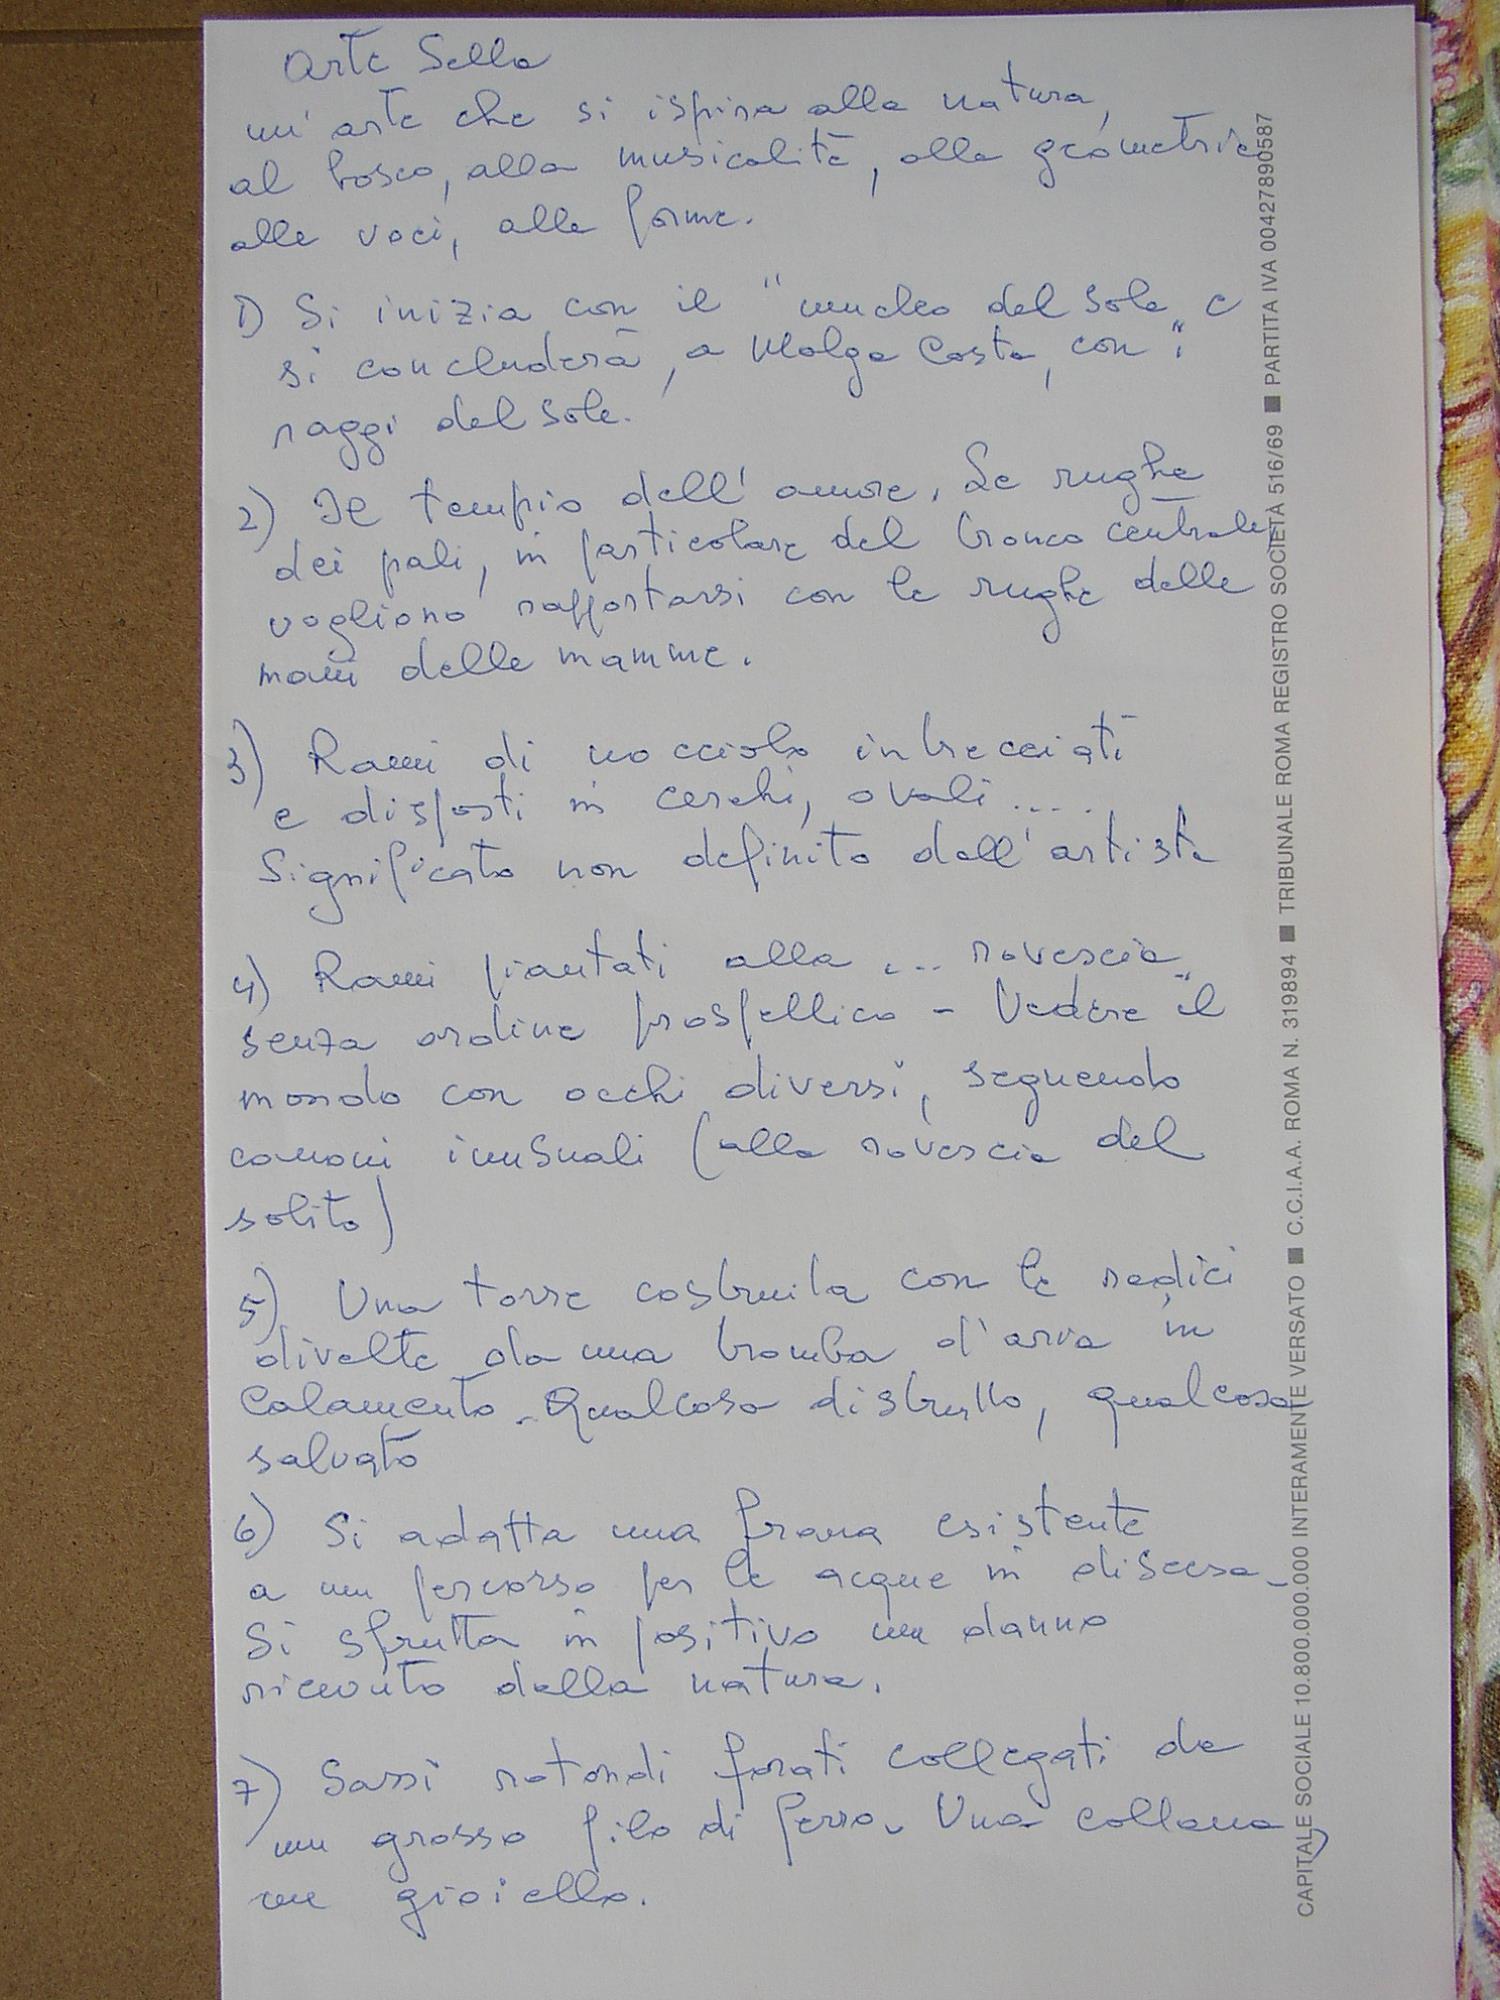 Arte Sella
un'arte che si ispira alla natura,
al bosco, alla musicalità, alla geometria
alle voci, alle forme.
1) Si inizia con il "nucleo del sole" e
si concluderà, a Malga Costa, con i
raggi del sole.
2) Il tempio dell'amore. Le rughe
dei pali, in particolare del tronco centrale,
vogliono rapportarsi con le rughe delle
mani delle mamme.
3) Rami di nocciolo intrecciati
e disposti in cerchi, ovali ....
Significato non definito dall'artista
4) Rami piantati alla ... rovescia
senza ordine prospettico - Vedere il
mondo con occhi diversi, seguendo
canoni inusuali (alla rovescia del
solito)
5) Una torre costruita con le radici
divelte da una tromba d'aria in
Calamento. Qualcosa distrutto, qualcosa
salvato
6) Si adatta una frana esistente
a un percorso per le acque in discesa -
Si sfrutta in positivo un danno
ricevuto dalla natura.
7) Sassi rotondi forati collegati da
un grosso filo di ferro. Una collana,
un gioiello.
CAPITALE SOCIALE 10.800.000.000 INTERAMENTE VERSATO ■ C.C.I.A.A. ROMA N. 319894 ■ TRIBUNALE ROMA REGISTRO SOCIETÀ 516/69 ■ PARTITA IVA 00427890587